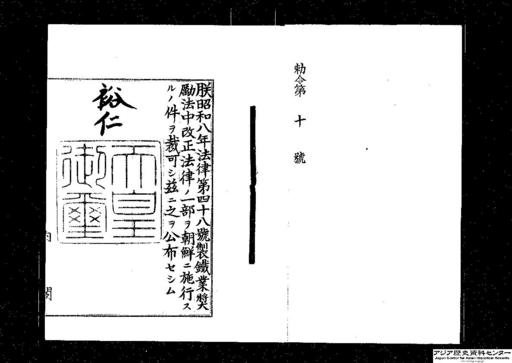 勅令第十號
朕昭和八年法律第四十八號製鐵業奬
勵法中改正法律ノ一部ヲ朝鮮ニ施行ス
ルノ件ヲ裁可シ茲ニ之ヲ公布セシム
裕仁
天皇
御璽
内閣
アジア歴史資料センター
Japan Center for Asian Historical Records